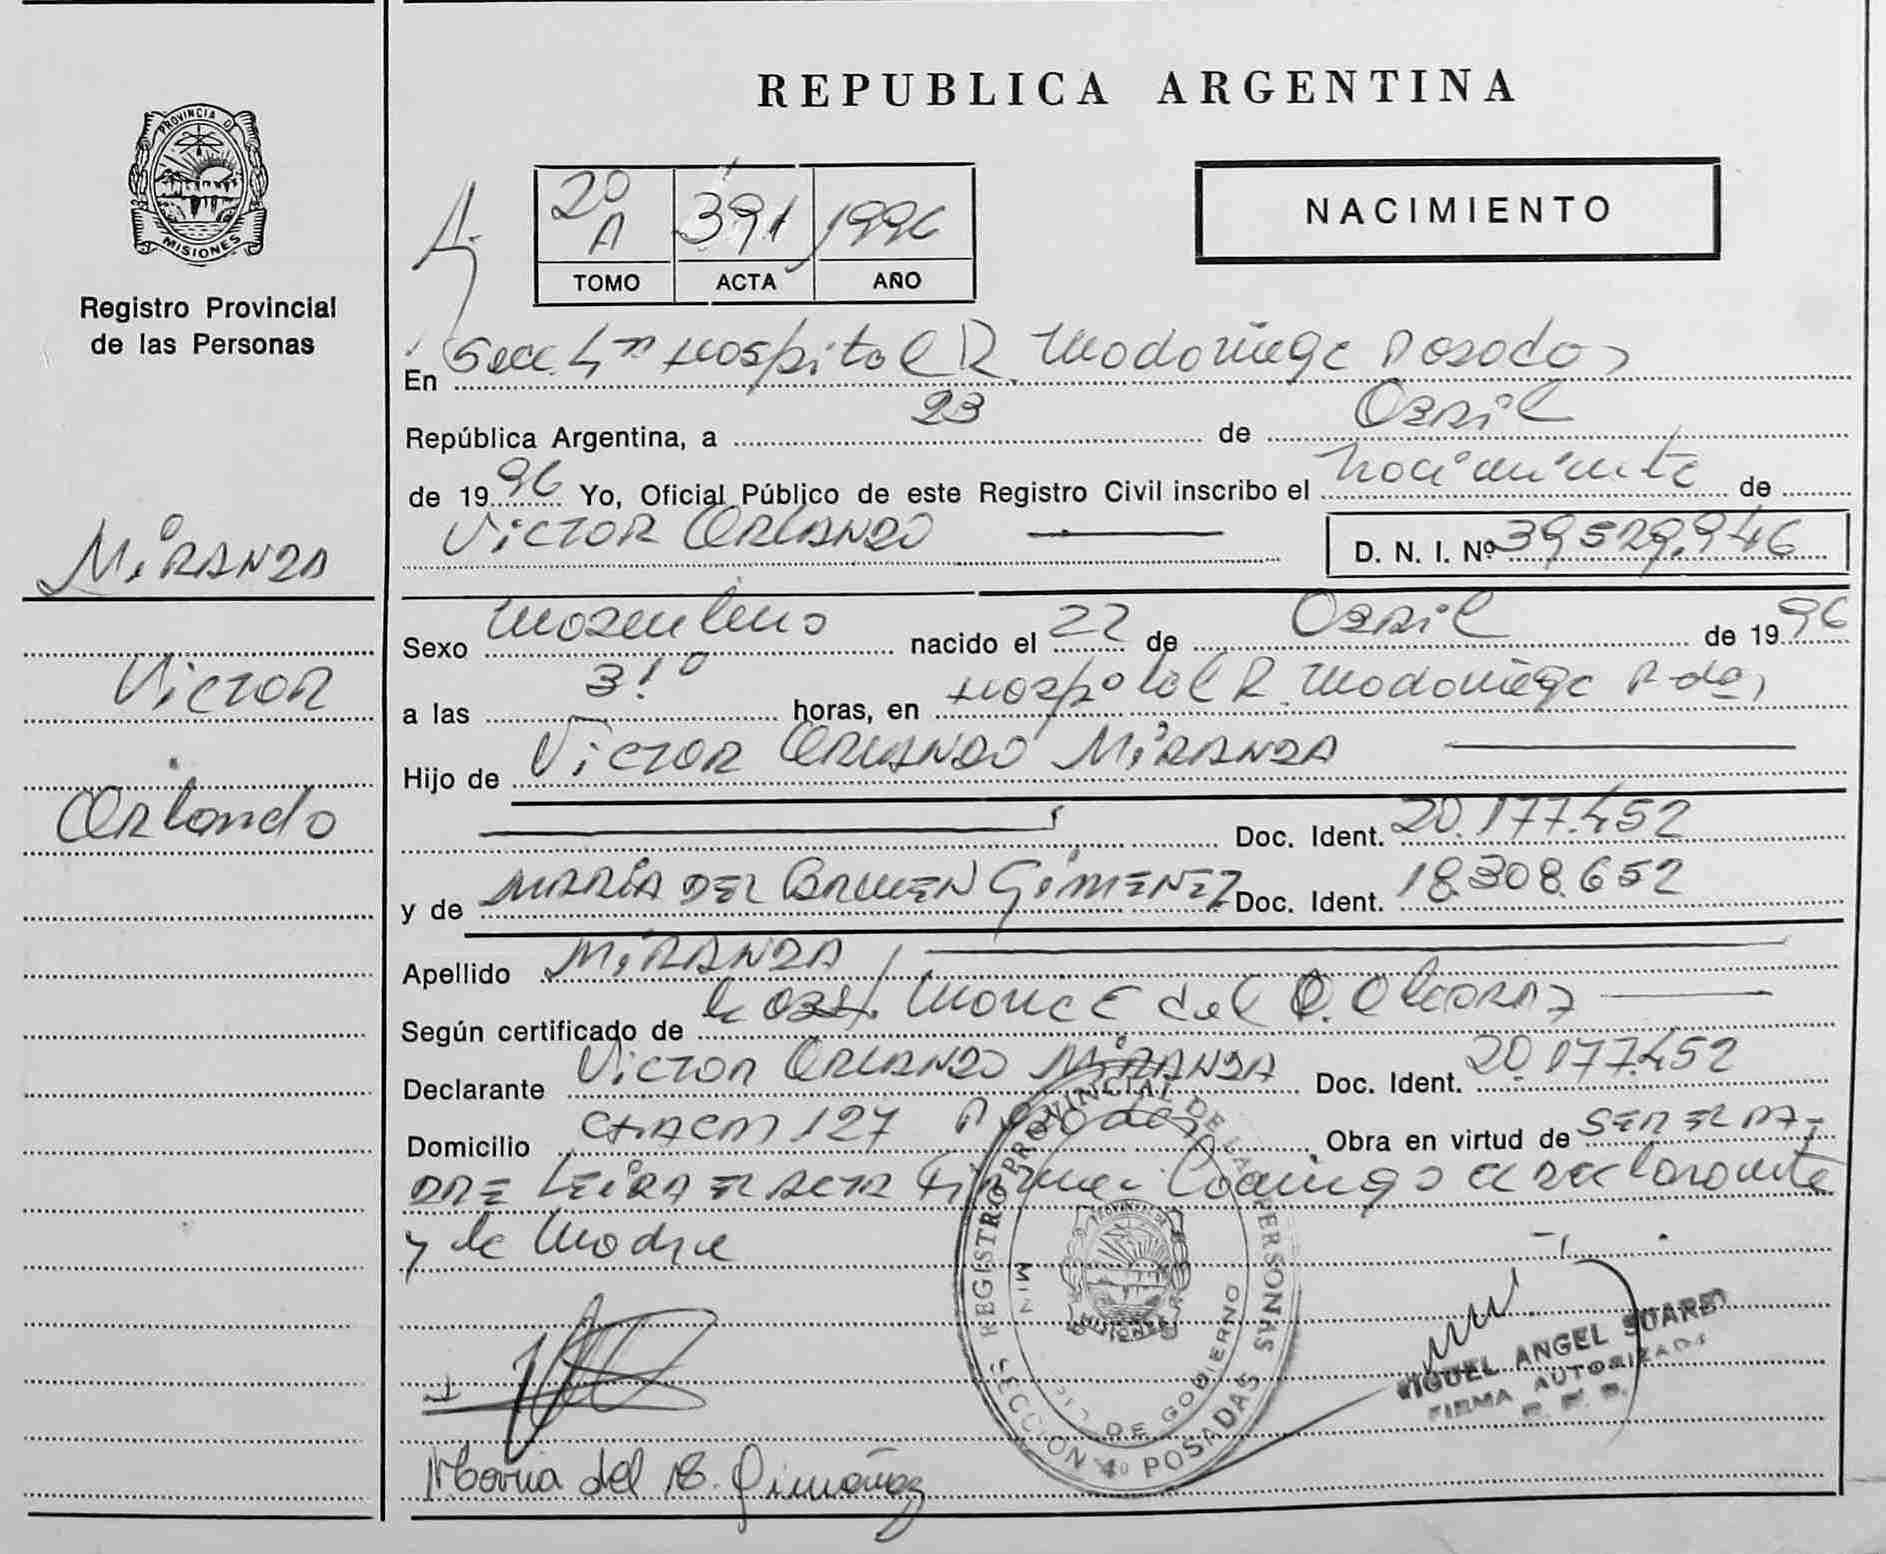 PROVINCIA DE
MISIONES
Registro Provincial
de las Personas
MIRANDA
Victor
Orlando
REPUBLICA ARGENTINA
20 A 391 1996
TOMO ACTA AÑO
NACIMIENTO
En Secc. 4ta Hospital R. Madariaga Posadas
República Argentina, a 23 de Abril
de 1996 Yo, Oficial Público de este Registro Civil inscribo el nacimiento de
VICTOR ORLANDO D. N. I. Nº 39.529.946
Sexo masculino nacido el 22 de Abril de 1996
a las 3:10 horas, en Hospital R. Madariaga Pdas
Hijo de VICTOR ORLANDO MIRANDA
Doc. Ident. 20.177.452
y de MARIA DEL CARMEN GIMENEZ Doc. Ident. 18.308.652
Apellido MIRANDA
Según certificado de la Obst. del
Declarante VICTOR ORLANDO MIRANDA Doc. Ident. 20.177.452
Domicilio CHACRA 127 Posadas, Obra en virtud de SER EL PA-
DRE LEIDA EL ACTA Firman Conmigo el declarante
y la Madre
REGISTRO PROVINCIAL DE LAS PERSONAS
SECCION 4º POSADAS
MIN DE GOBIERNO
PROVINCIA DE
MISIONES
MIGUEL ANGEL SUAREZ
FIRMA AUTORIZADA
Maria del C. Gimenez